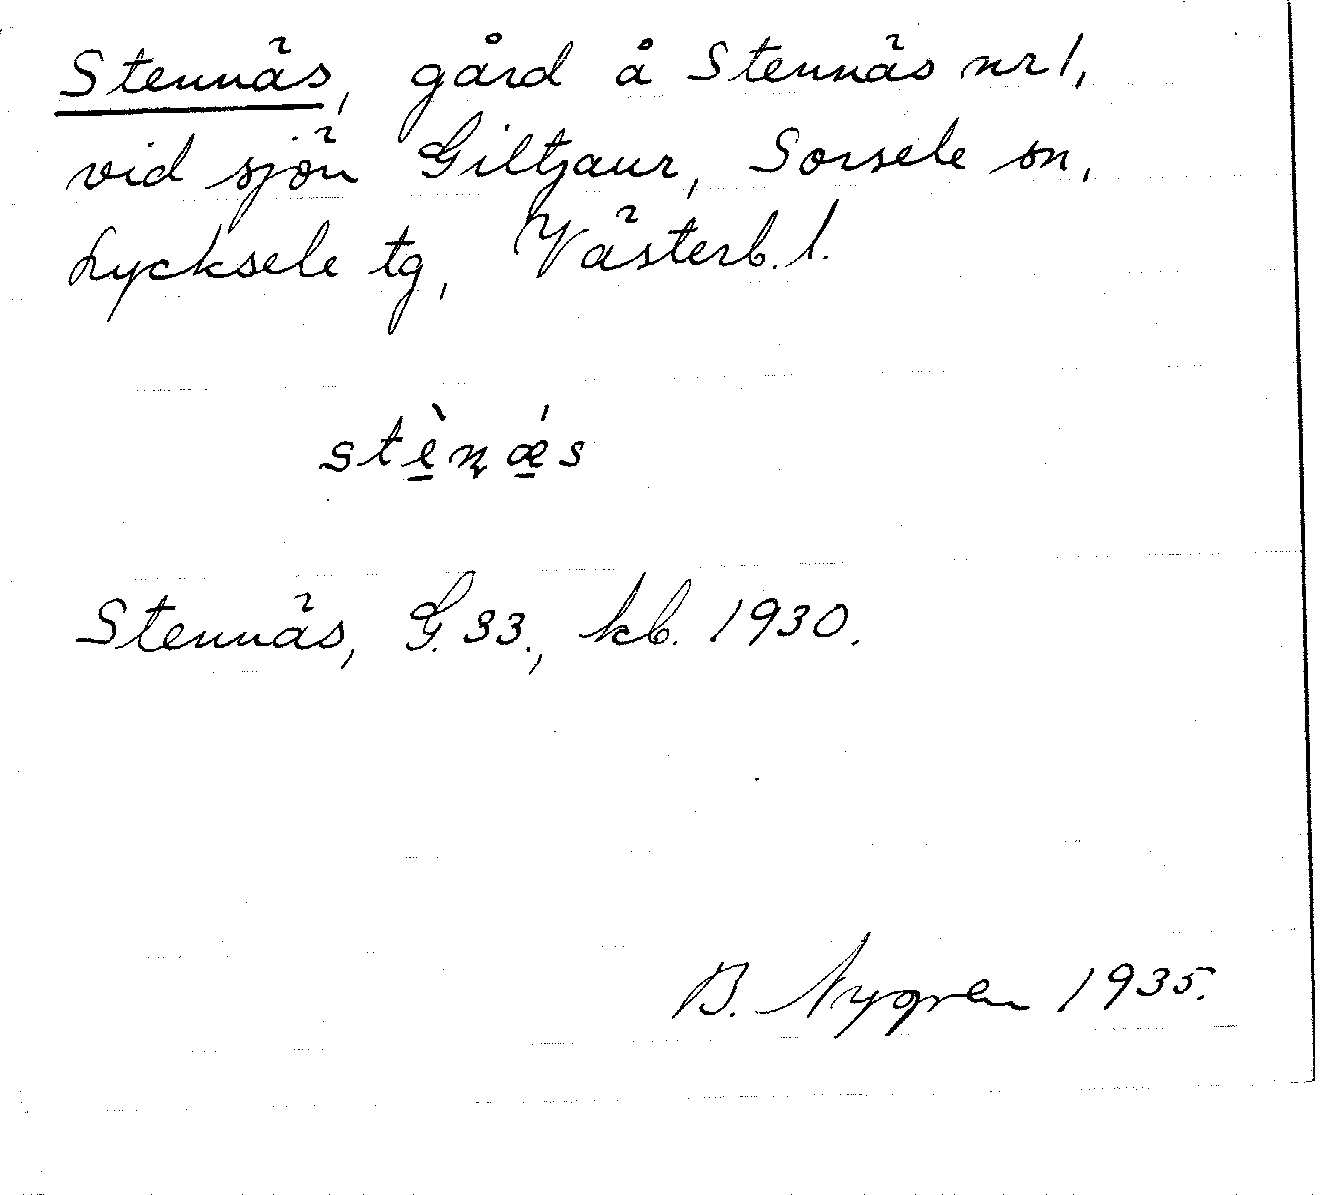 Stennäs, gård å Stennäs nr 1,
vid sjön Giltjaur, Sorsele sn,
Lycksele tg, Västerb. l.
stè̱n̨ǽ̱s
Stennäs, G. 33., kb. 1930.
B. Nygren 1935.